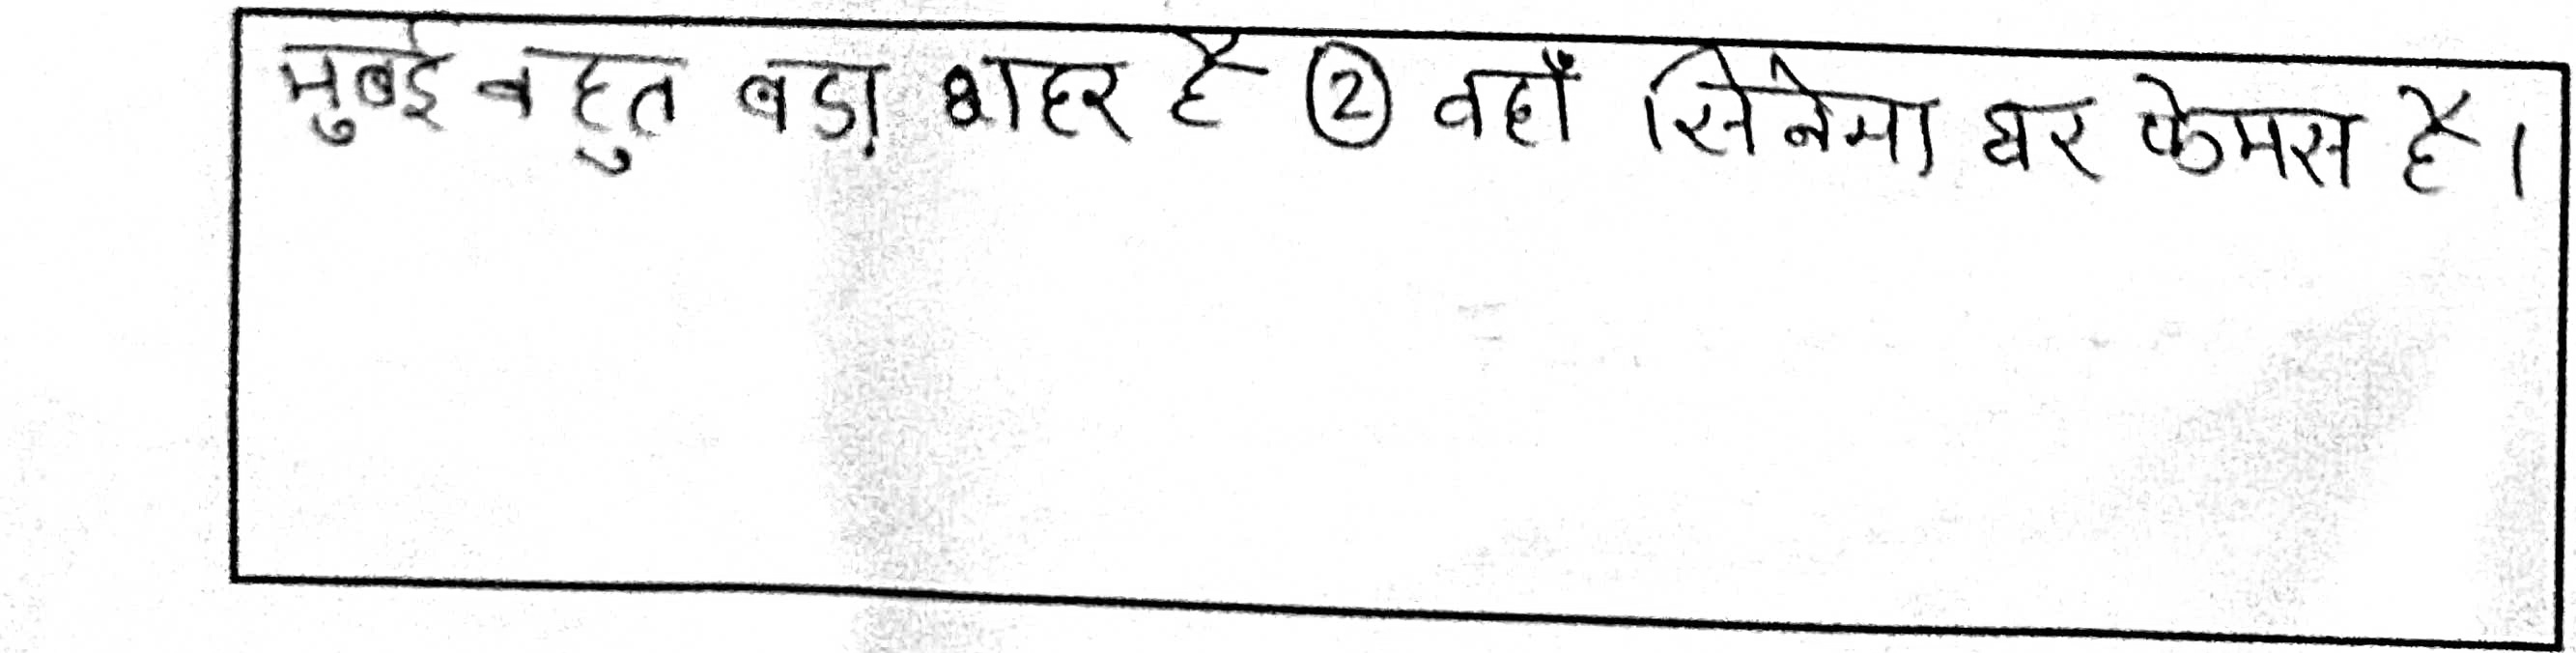 मुबई बहुत बडा़ शहर है ② वहाँ सिनेमा घर फेमस है।